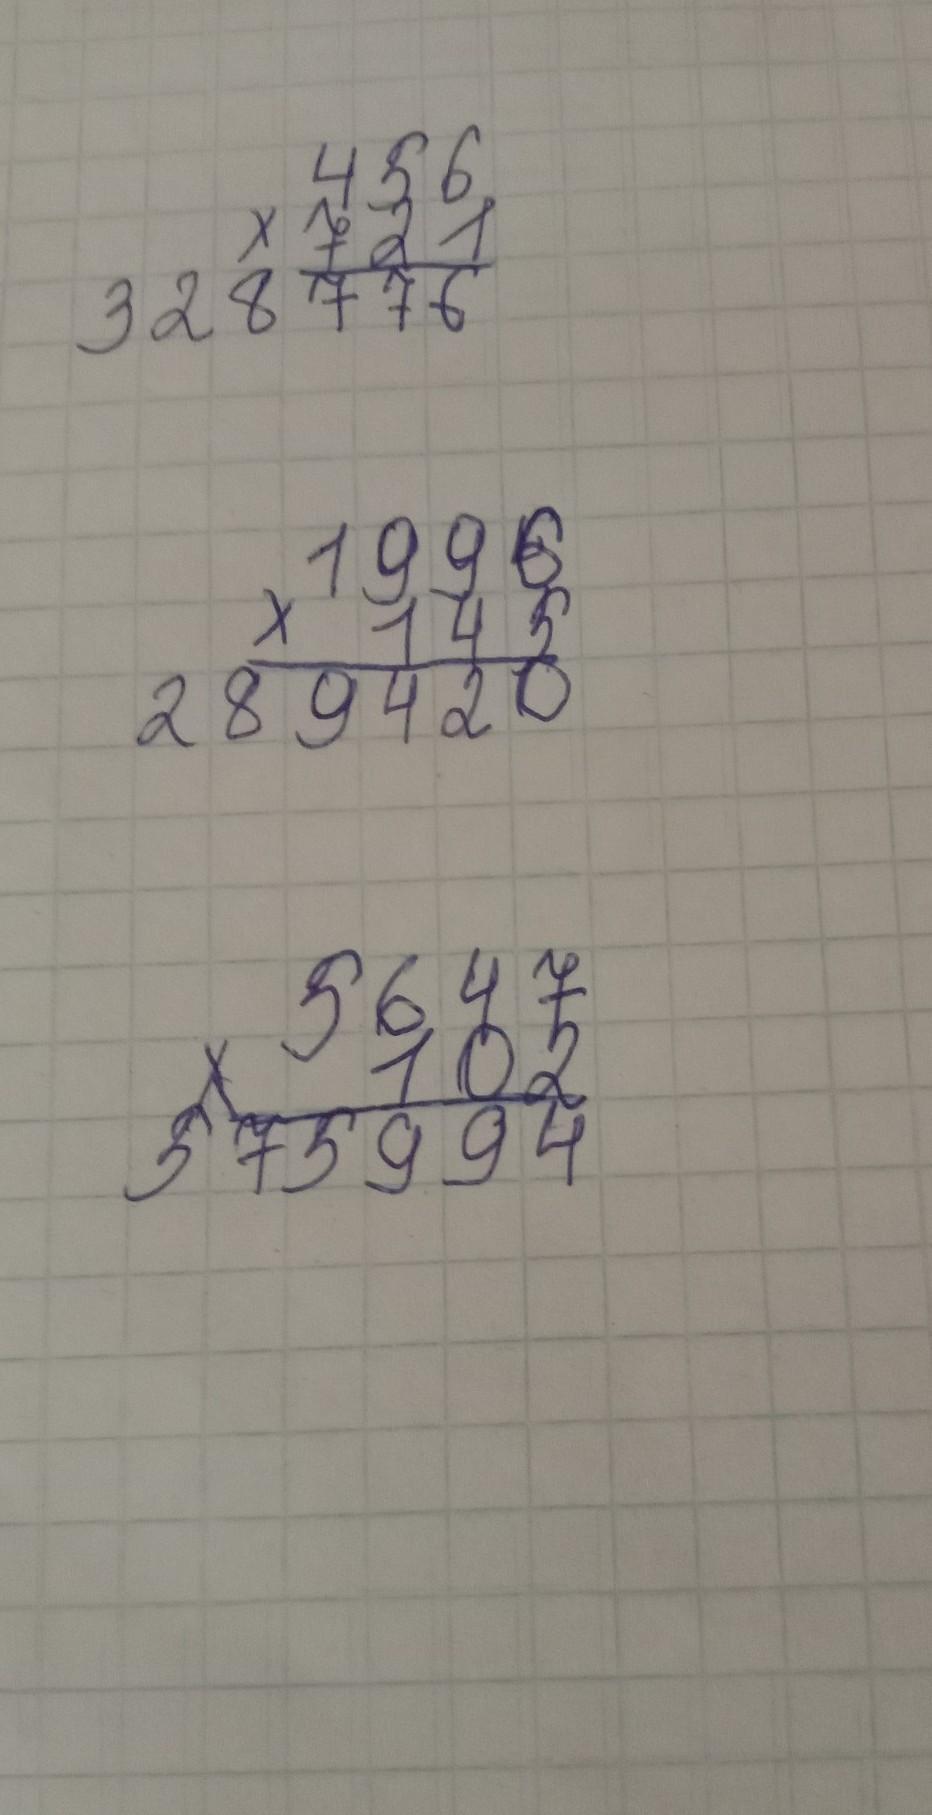 456
× 721
328776
1996
× 145
289420
5647
× 102
575994